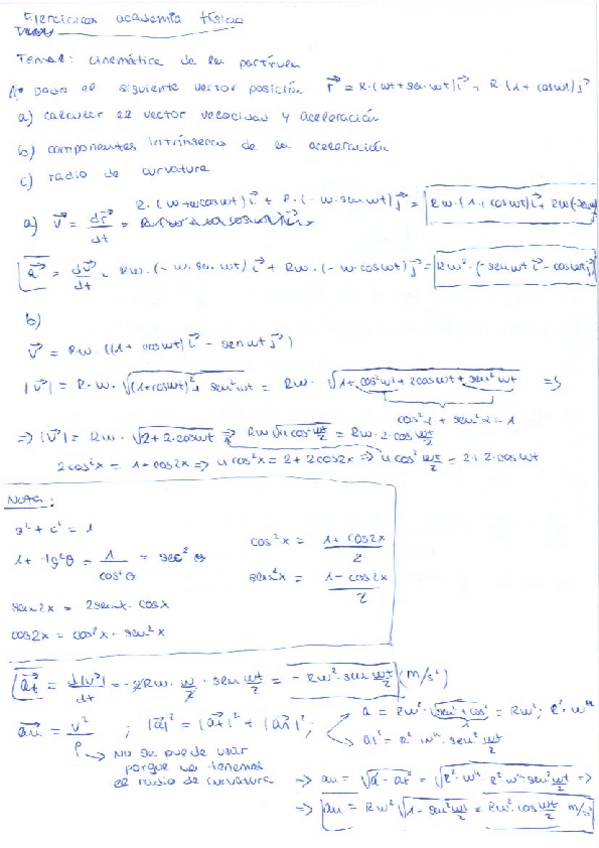 Ejercicios academia física
Tema 1: cinemática de la partícula
1º Dado el siguiente vector posición r⃗ = R·(wt+sen wt)i⃗ + R·(1+coswt)j⃗
a) calcular el vector velocidad y aceleración
b) componentes intrínseca de la aceleración
c) radio de curvatura
a) v⃗ = dr⃗/dt = R·(w+wcoswt)i⃗ + R·(-w·senwt)j⃗ = Rw·(1+coswt)i⃗ + Rw(-senwt
a⃗ = dv⃗/dt = Rw·(-w·senwt)i⃗ + Rw·(-w·coswt)j⃗ = Rw²·(-senwt i⃗ - coswt j⃗)
b)
v⃗ = Rw·((1+coswt)i⃗ - senwt j⃗)
|v⃗| = R·w·√((1+coswt)²+sen²wt) = Rw·√(1+cos²wt+2coswt+sen²wt) =>
cos²α + sen²α = 1
=> |v⃗| = Rw·√(2+2·coswt) => Rw√(4cos² wt/2) = Rw·2·cos wt/2
2cos²x = 1+cos2x => 4cos²x = 2+2cos2x => 4cos² wt/2 = 2+2·coswt
NOTA:
s²+c² = 1
1+tg²θ = 1/cos²θ = sec²θ
cos²x = (1+cos2x)/2
sen²x = (1-cos2x)/2
sen2x = 2senx·cosx
cos2x = cos²x - sen²x
at⃗ = d|v⃗|/dt = -2Rw·w/2·sen wt/2 = -Rw²·sen wt/2 (m/s²)
an⃗ = v²/ρ ; |a⃗|² = |at⃗|² + |an⃗|²;
a = Rw²·√(sen²+cos²) = Rw²; R²·w⁴
1
at² = R²·w⁴·sen² wt/2
No se puede usar
porque no tenemos
el radio de curvatura
=> an = √(a²-at²) = √(R²·w⁴ - R²w⁴sen² wt/2) =>
=> an = Rw²√(1-sen² wt/2) = Rw²·cos wt/2 m/s²